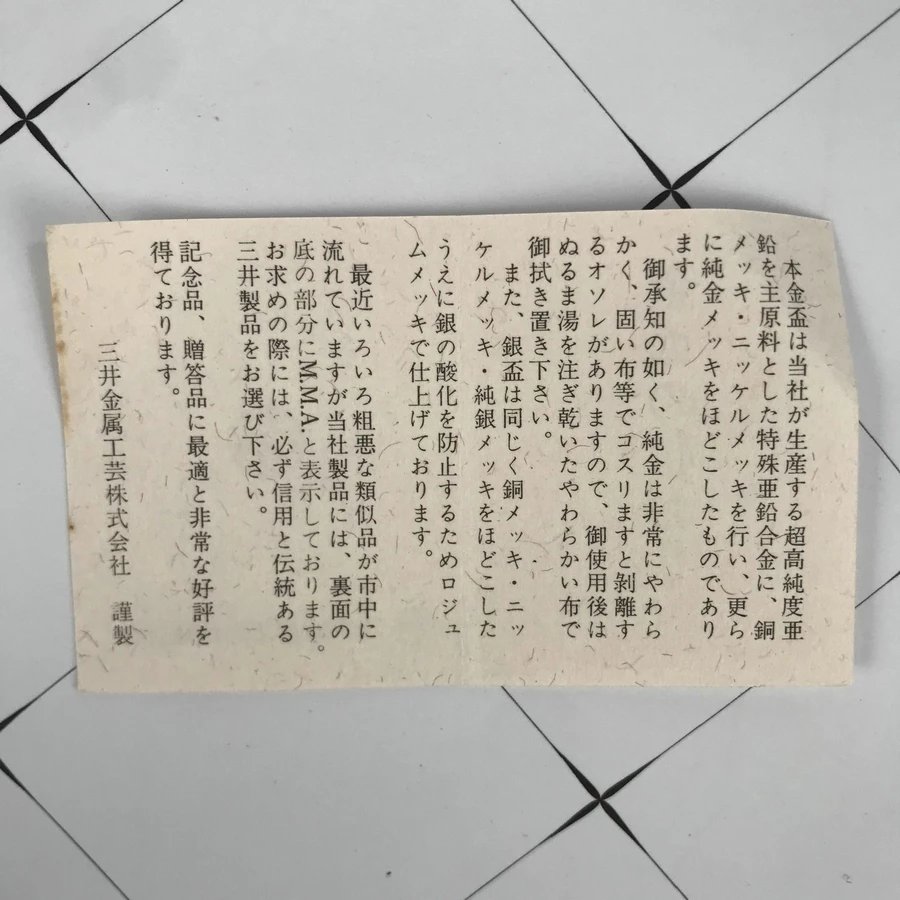 本金盃は当社が生産する超高純度亜
鉛を主原料とした特殊亜鉛合金に、銅
メッキ・ニッケルメッキを行い、更ら
に純金メッキをほどこしたものであり
ます。
御承知の如く、純金は非常にやわら
かく、固い布等でコスリますと剝離す
るオソレがありますので、御使用後は
ぬるま湯を注ぎ乾いたやわらかい布で
御拭き置き下さい。
また、銀盃は同じく銅メッキ・ニッ
ケルメッキ・純銀メッキをほどこした
うえに銀の酸化を防止するためロジュ
ムメッキで仕上げております。
最近いろいろ粗悪な類似品が市中に
流れていますが当社製品には、裏面の
底の部分にM.M.A.と表示しております。
お求めの際には、必ず信用と伝統ある
三井製品をお選び下さい。
記念品、贈答品に最適と非常な好評を
得ております。
三井金属工芸株式会社 謹製